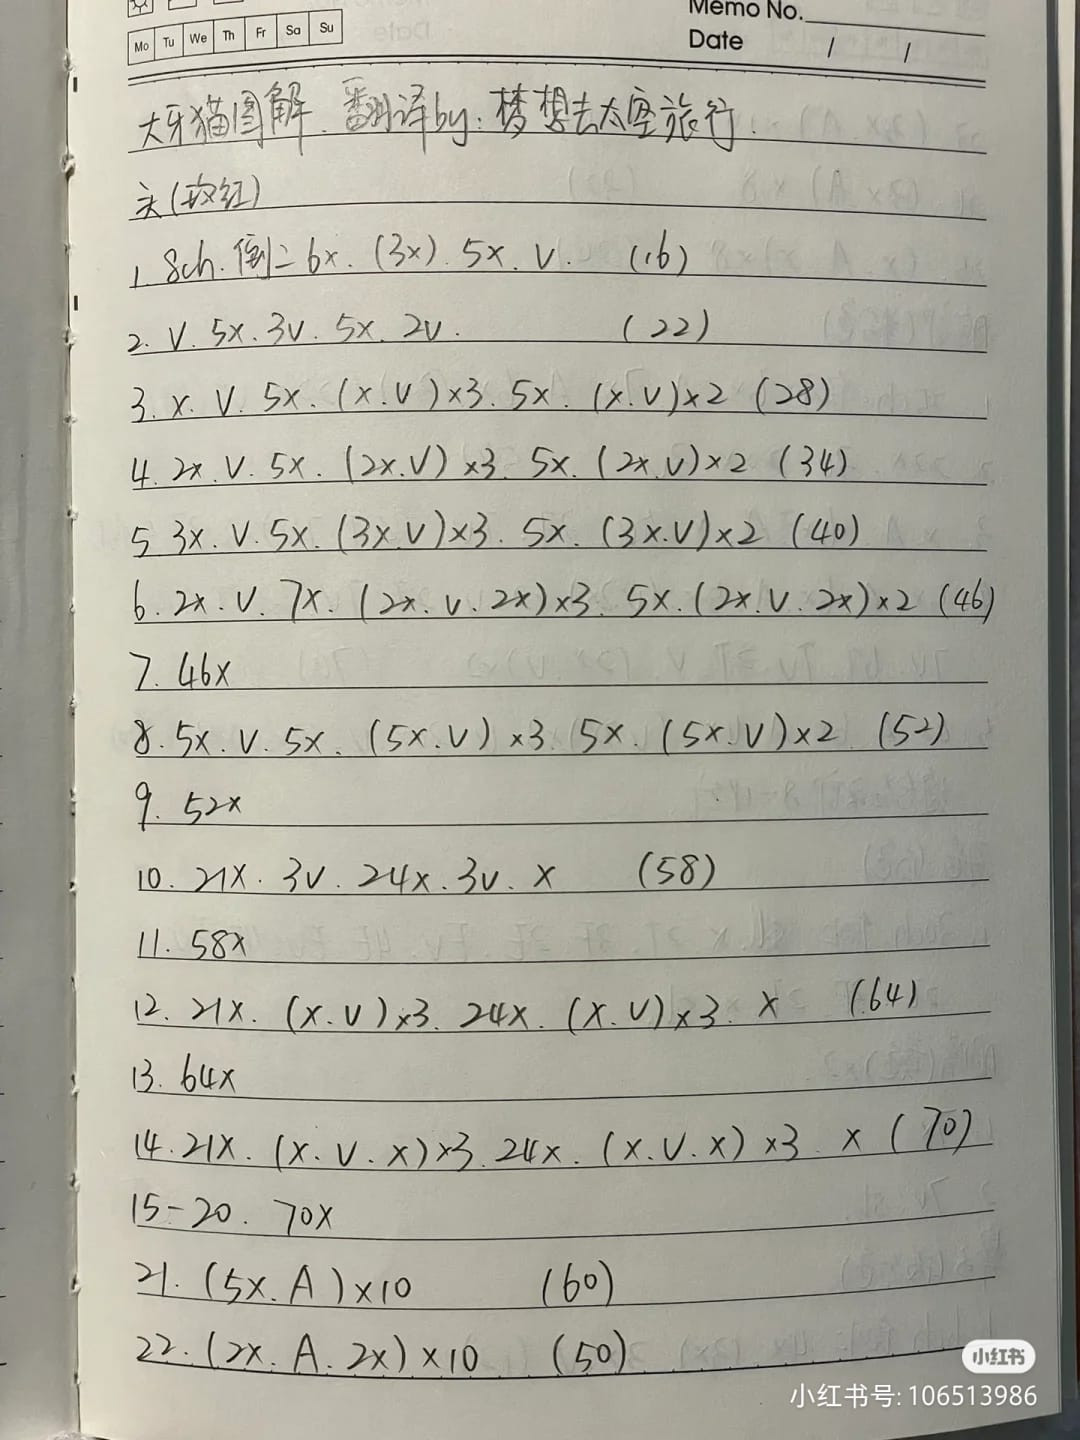 Mo Tu We Th Fr Sa Su
Memo No.
Date / /
大牙猫图解.翻译by:梦想去太空旅行.
头(玫红)
1. 8ch.倒二6x.(3x).5x.V. (16)
2. V.5x.3V.5x.2V. (22)
3. x.V.5x.(x.V)×3.5x.(x.V)×2 (28)
4. 2x.V.5x.(2x.V)×3.5x.(2x.V)×2 (34)
5. 3x.V.5x.(3x.V)×3.5x.(3x.V)×2 (40)
6. 2x.V.7x.(2x.V.2x)×3.5x.(2x.V.2x)×2 (46)
7. 46x
8. 5x.V.5x.(5x.V)×3.5x.(5x.V)×2.(52)
9. 52x
10. 21x.3V.24x.3V.x (58)
11. 58x
12. 21x.(x.V)×3.24x.(x.V)×3.x (64)
13. 64x
14. 21x.(x.V.x)×3.24x.(x.V.x)×3.x (70)
15-20. 70x
21. (5x.A)×10 (60)
22. (2x.A.2x)×10 (50)
小红书
小红书号: 106513986